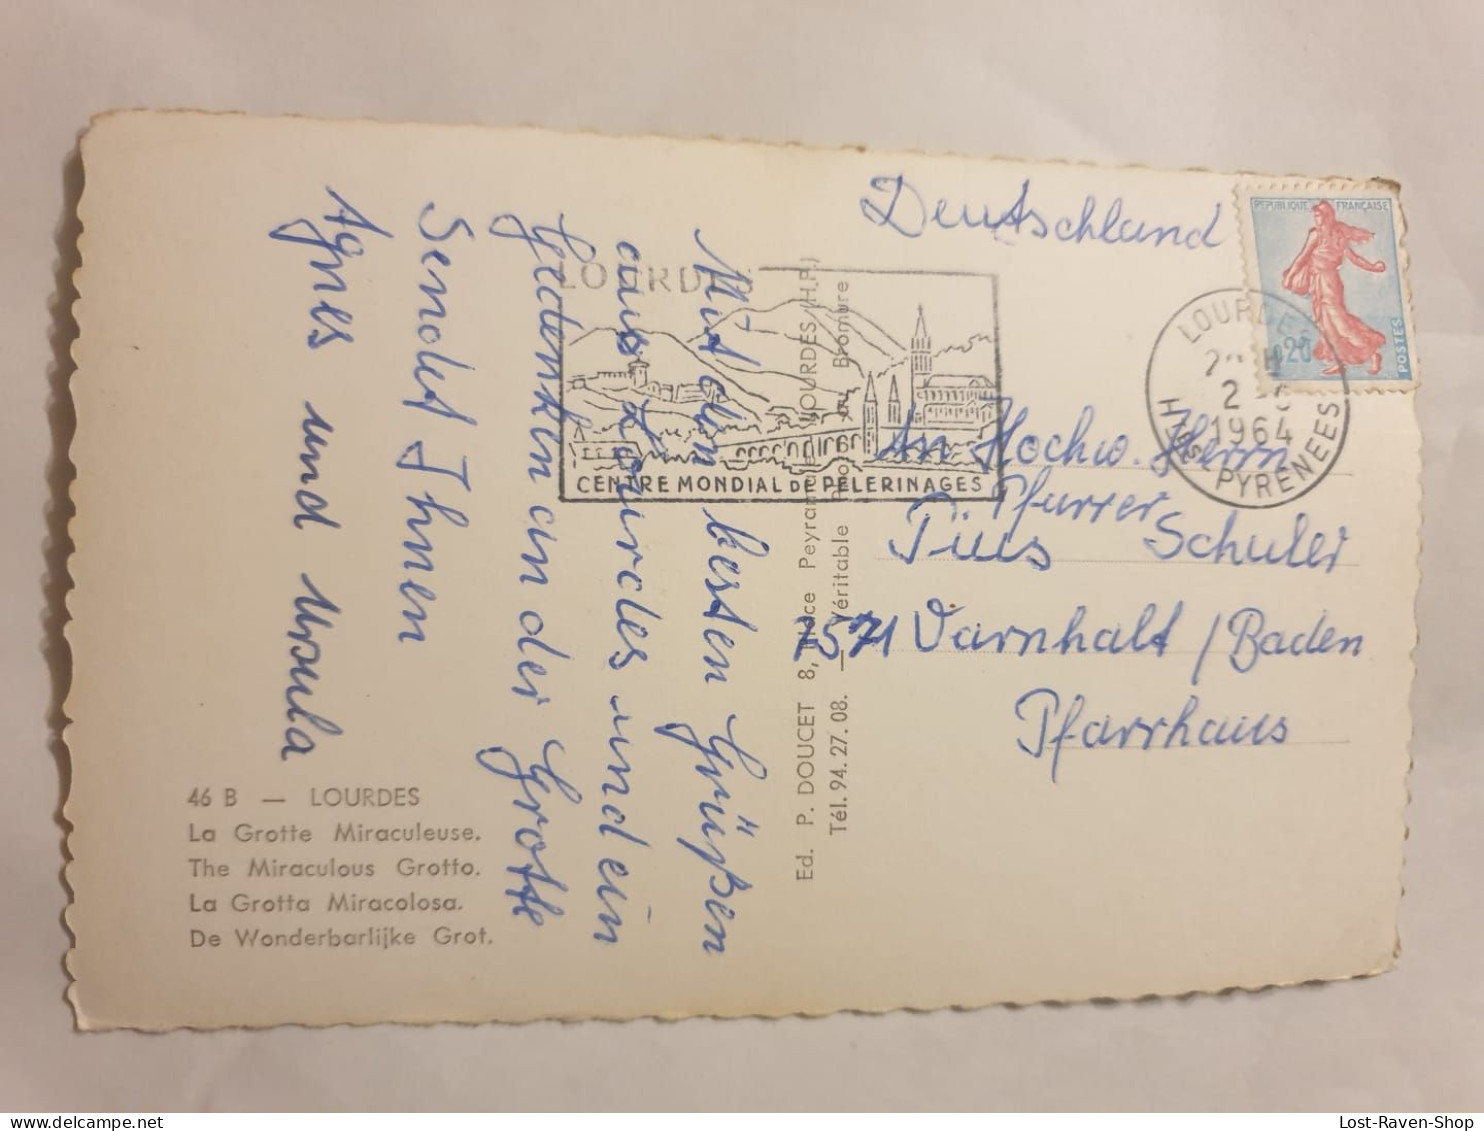 Mit den besten Grüßen
aus Lourdes und ein
Gedenken an der Grotte
Sendet Ihnen
Agnes und Ursula
46 B — LOURDES
La Grotte Miraculeuse.
The Miraculous Grotto.
La Grotta Miracolosa.
De Wonderbarlijke Grot.
Ed. P. DOUCET 8, Place Peyramale LOURDES (H.P.)
Tél. 94.27.08. — Véritable Photo au Bromure
LOURDES
CENTRE MONDIAL DE PELERINAGES
Deutschland
REPUBLIQUE FRANÇAISE
0,20
POSTES
LOURDES
1964
HTES PYRENEES
An Hochw. Herrn
Pfarrer
Pius Schuler
7571 Varnhalt / Baden
Pfarrhaus
Lost-Raven-Shop